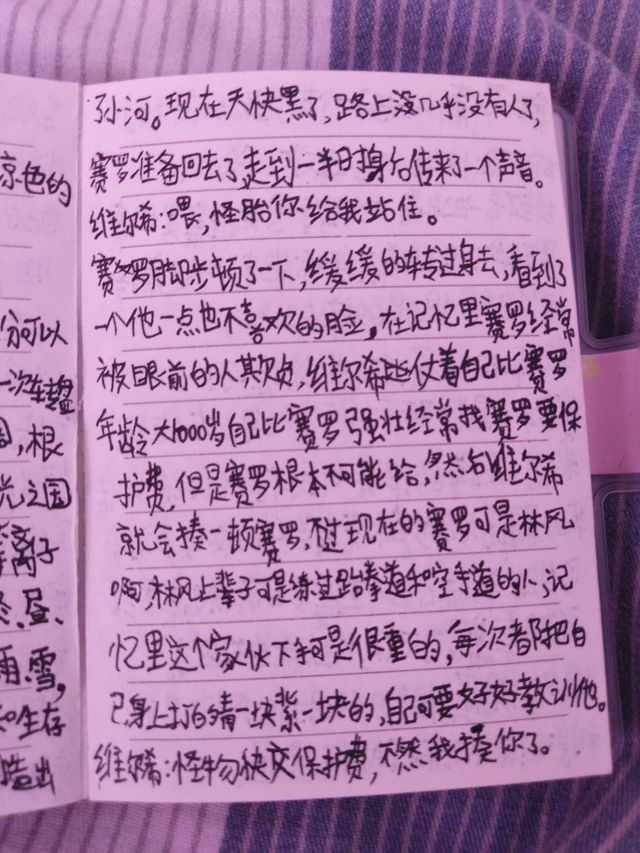 京色的
份可以
一次转盘
园,根
光之国
离子
昼、
雨.雪,
和生存
造出
孙河。现在天快黑了,路上没几乎没有人了,
赛罗准备回去了,走到一半时身后传来了一个声音。
维尔希:喂,怪胎你给我站住。
赛罗脚步顿了一下,缓缓的转过身去,看到了
一个他一点也不喜欢的脸。在记忆里赛罗经常
被眼前的人欺负,维尔希些仗着自己比赛罗
年龄大1000岁自己比赛罗强壮经常找赛罗要保
护费,但是赛罗根本不可能给,然后维尔希
就会揍一顿赛罗,不过现在的赛罗可是林风
啊,林风上辈子可是练过跆拳道和空手道的人,记
忆里这个家伙下手可是很重的,每次都把自
己身上打的青一块紫一块的,自己可要好好教训他。
维尔希:怪物快交保护费,不然我揍你了。